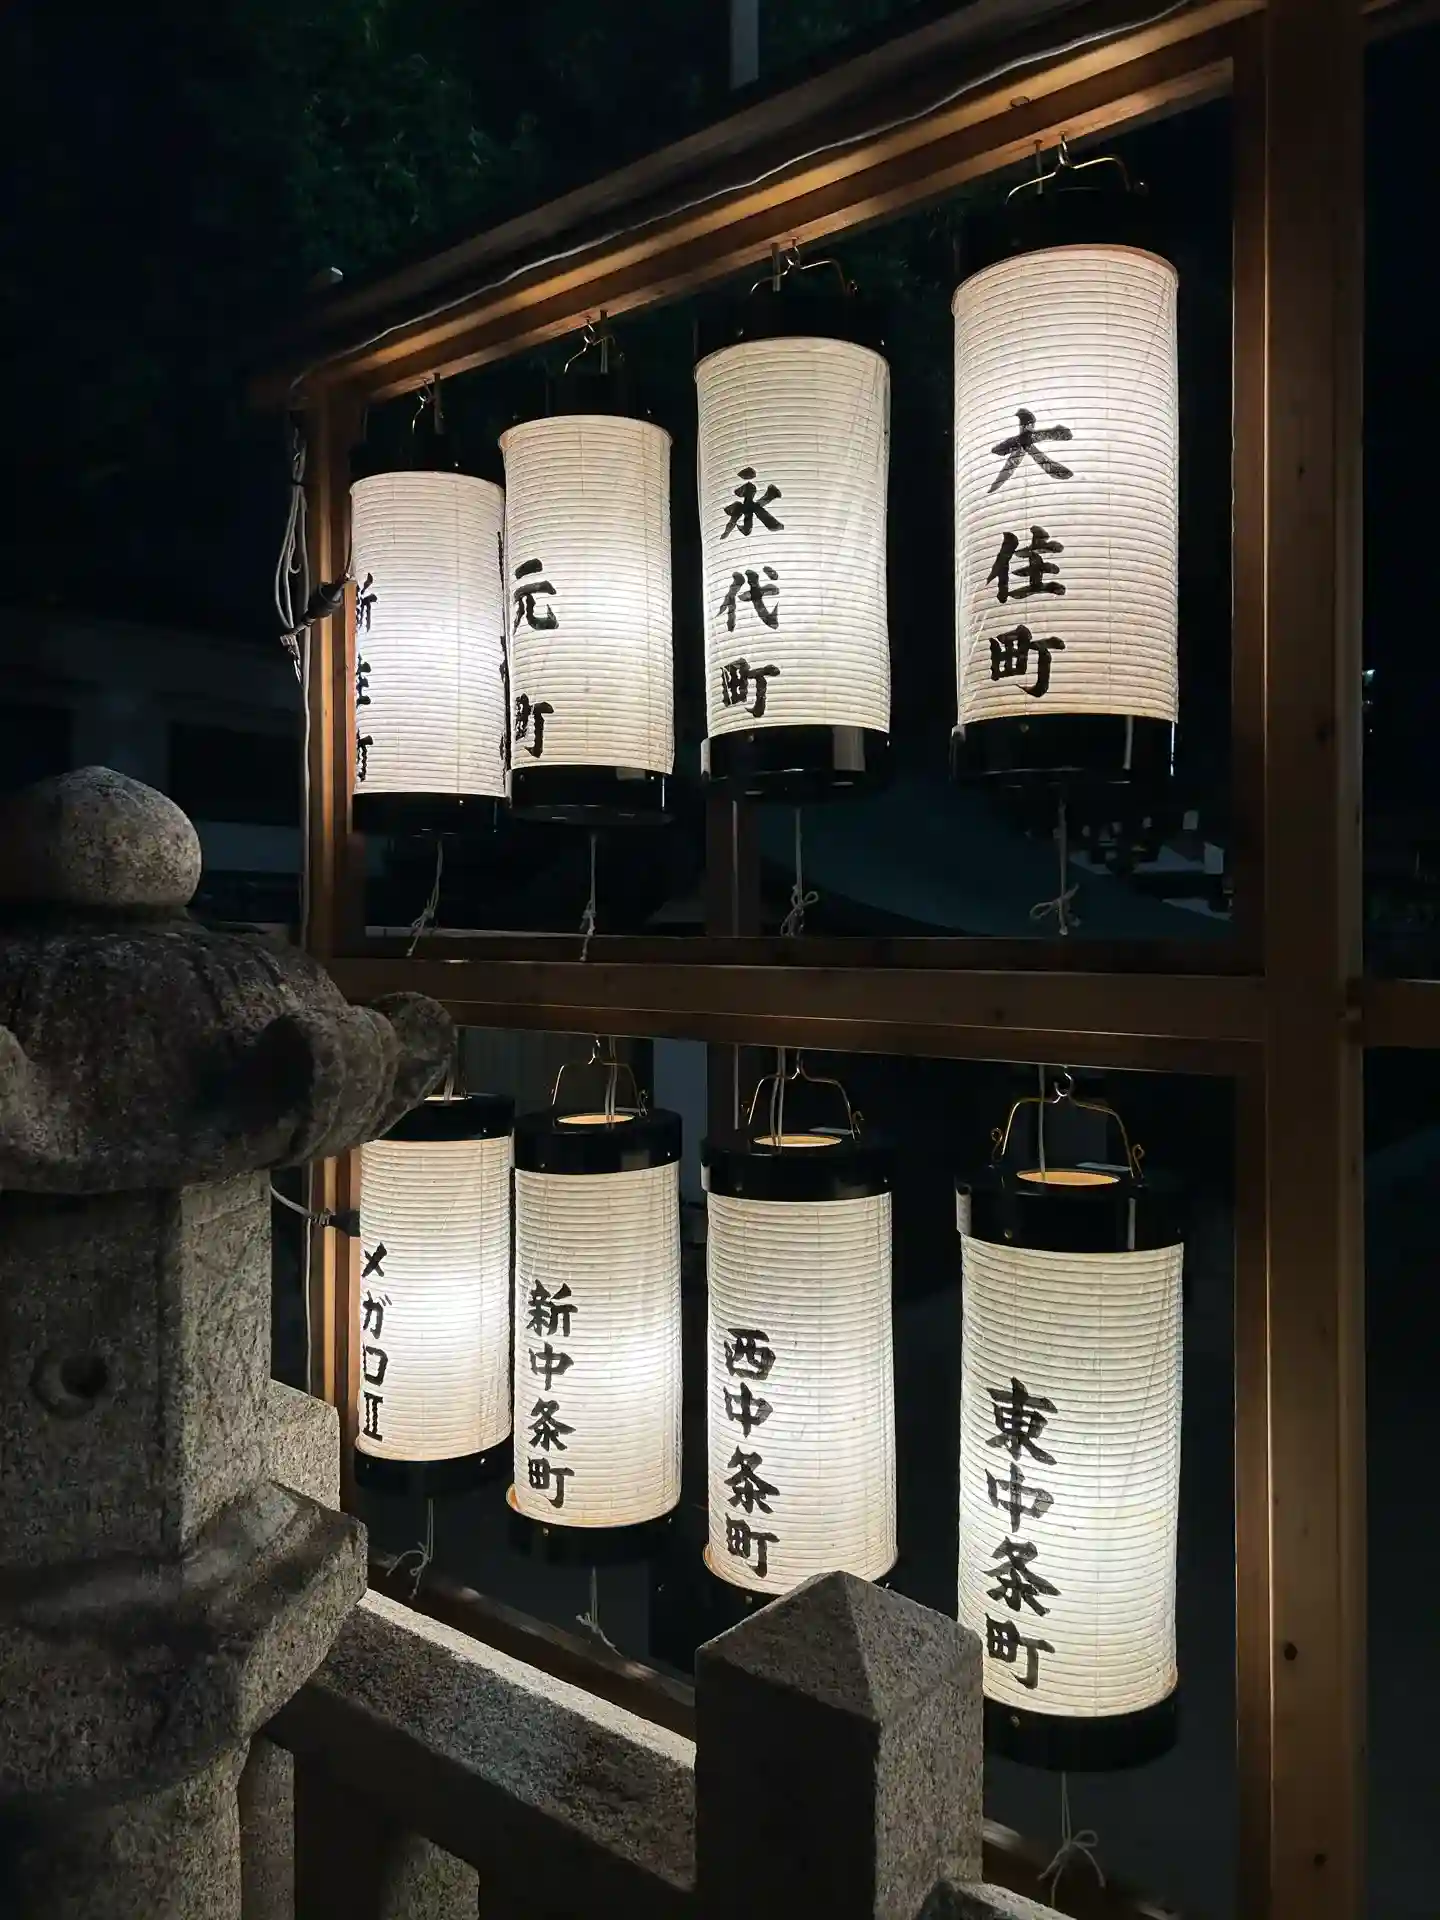 大住町
永代町
元町
新住町
東中条町
西中条町
新中条町
メガロⅡ